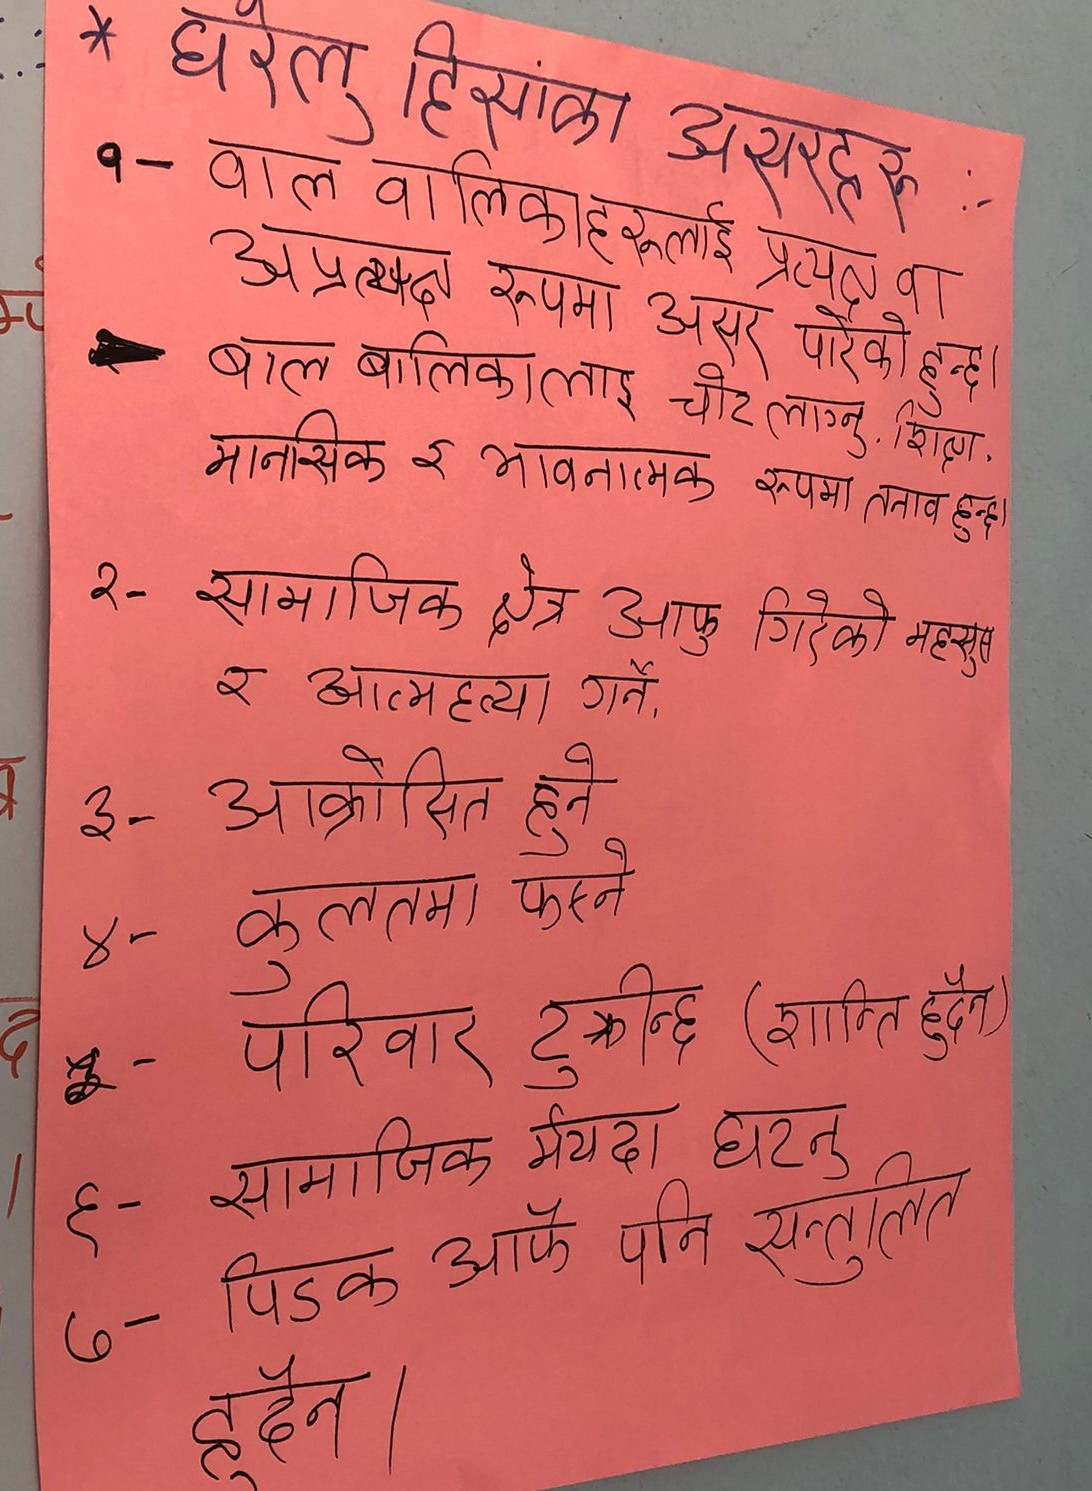 * घरेलु हिसांका असरहरू :-
१- वाल वालिकाहरूलाई प्रत्यक्ष वा
अप्रत्यक्ष रूपमा असर पारेको हुन्छ।
बाल बालिकालाइ चोट लाग्नु, शिक्षा,
मानसिक र भावनात्मक रूपमा तनाव हुन्छ।
२- सामाजिक क्षेत्र आफु गिरेको महसुस
र आत्महत्या गर्ने,
३- आक्रोसित हुने
४- कुलतमा फस्ने
५- परिवार टुक्रीन्छ (शान्ति हुदैन)
६- सामाजिक र्मयदा घटनु
७- पिडक आफै पनि सन्तुलित
हुदैन।